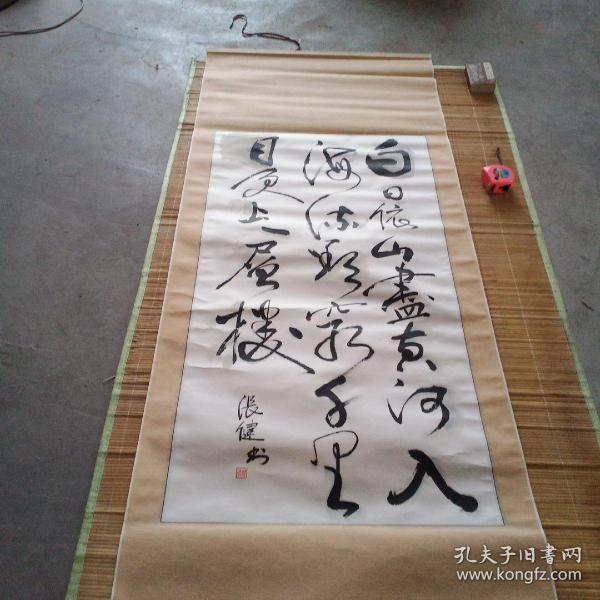 白日依山盡黄河入
海流欲窮千里
目更上一层樓
張健书
孔夫子旧書网
www.kongfz.com